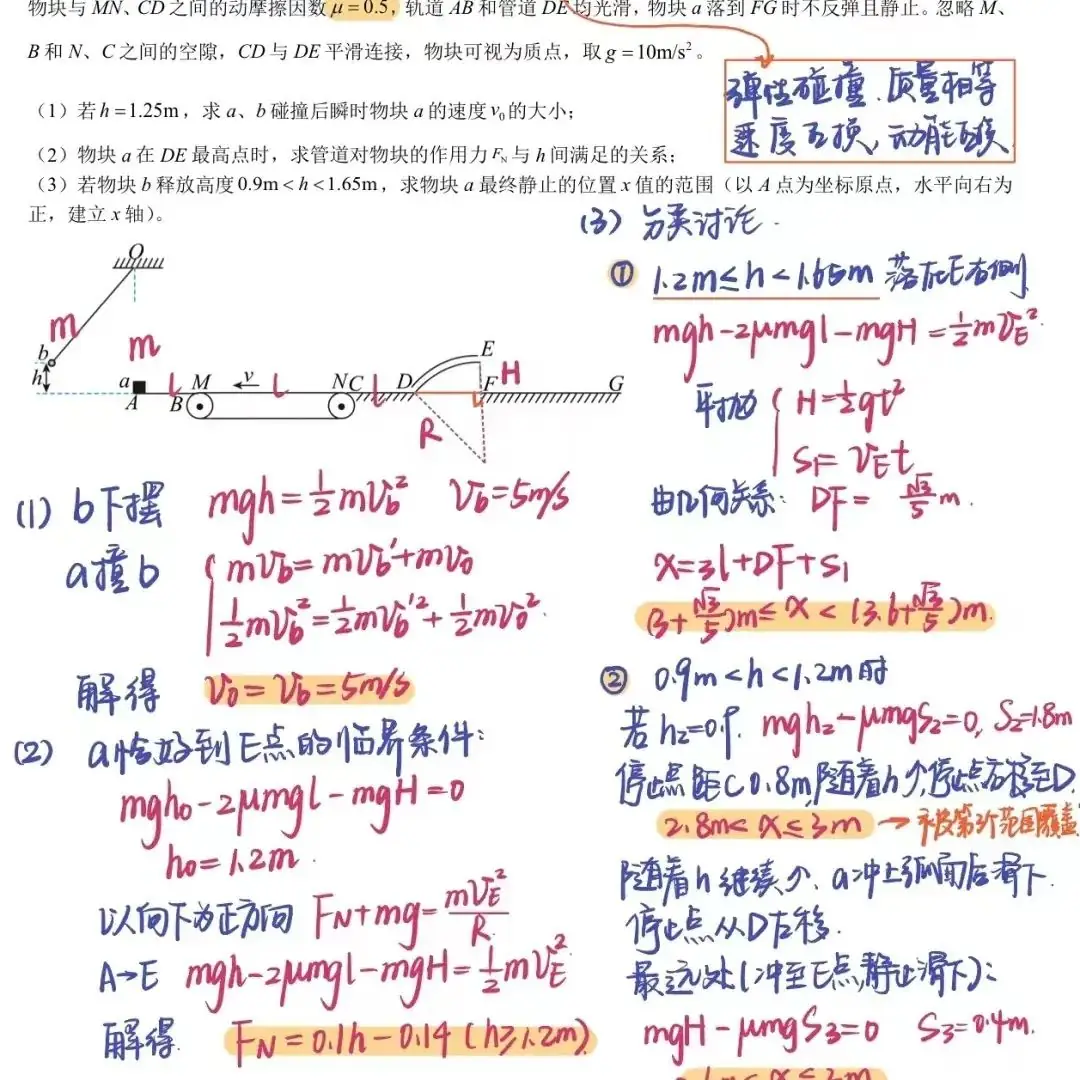 物块与 MN、CD 之间的动摩擦因数 μ=0.5，轨道 AB 和管道 DE 均光滑，物块 a 落到 FG 时不反弹且静止。忽略 M、
B 和 N、C 之间的空隙，CD 与 DE 平滑连接，物块可视为质点，取 g=10m/s²。
弹性碰撞.质量相等
速度互换，动能互换
（1）若 h=1.25m，求 a、b 碰撞后瞬时物块 a 的速度 v₀的大小；
（2）物块 a 在 DE 最高点时，求管道对物块的作用力 F_N 与 h 间满足的关系；
（3）若物块 b 释放高度 0.9m<h<1.65m，求物块 a 最终静止的位置 x 值的范围（以 A 点为坐标原点，水平向右为
正，建立 x 轴）。
O
m
m
b
h
a
A
l
B
M
v
l
N
C
l
D
E
F
H
G
R
(1) b下摆 mgh=½mv_b² v_b=5m/s
a撞b
mv_b=mv_b'+mv₀
½mv_b²=½mv_b'²+½mv₀².
解得 v₀=v_b=5m/s
(2) a恰好到E点的临界条件:
mgh₀-2μmgl-mgH=0
h₀=1.2m.
以向下为正方向 F_N+mg=mv_E²/R
A→E mgh-2μmgl-mgH=½mv_E²
解得. F_N=0.1h-0.14 (h≥1.2m)
(3) 分类讨论.
① 1.2m≤h<1.65m 落在E右侧
mgh-2μmgl-mgH=½mv_E².
平抛 H=½gt²
S₁=v_Et
由几何关系: DF=√3/5 m.
x=3l+DF+S₁
(3+√3/5)m≤x<(3.6+√3/5)m.
② 0.9m<h<1.2m时
若h₂=0.9. mgh₂-μmgS₂=0, S₂=1.8m
停止点距C 0.8m,随着h↑,停止点右移至D.
2.8m<x≤3m → 被第3个范围覆盖
随着h继续↑、a冲上弧面后滑下.
停止点从D左移.
最远处(冲至E点,静止滑下):
mgH-μmgS₃=0 S₃=0.4m.